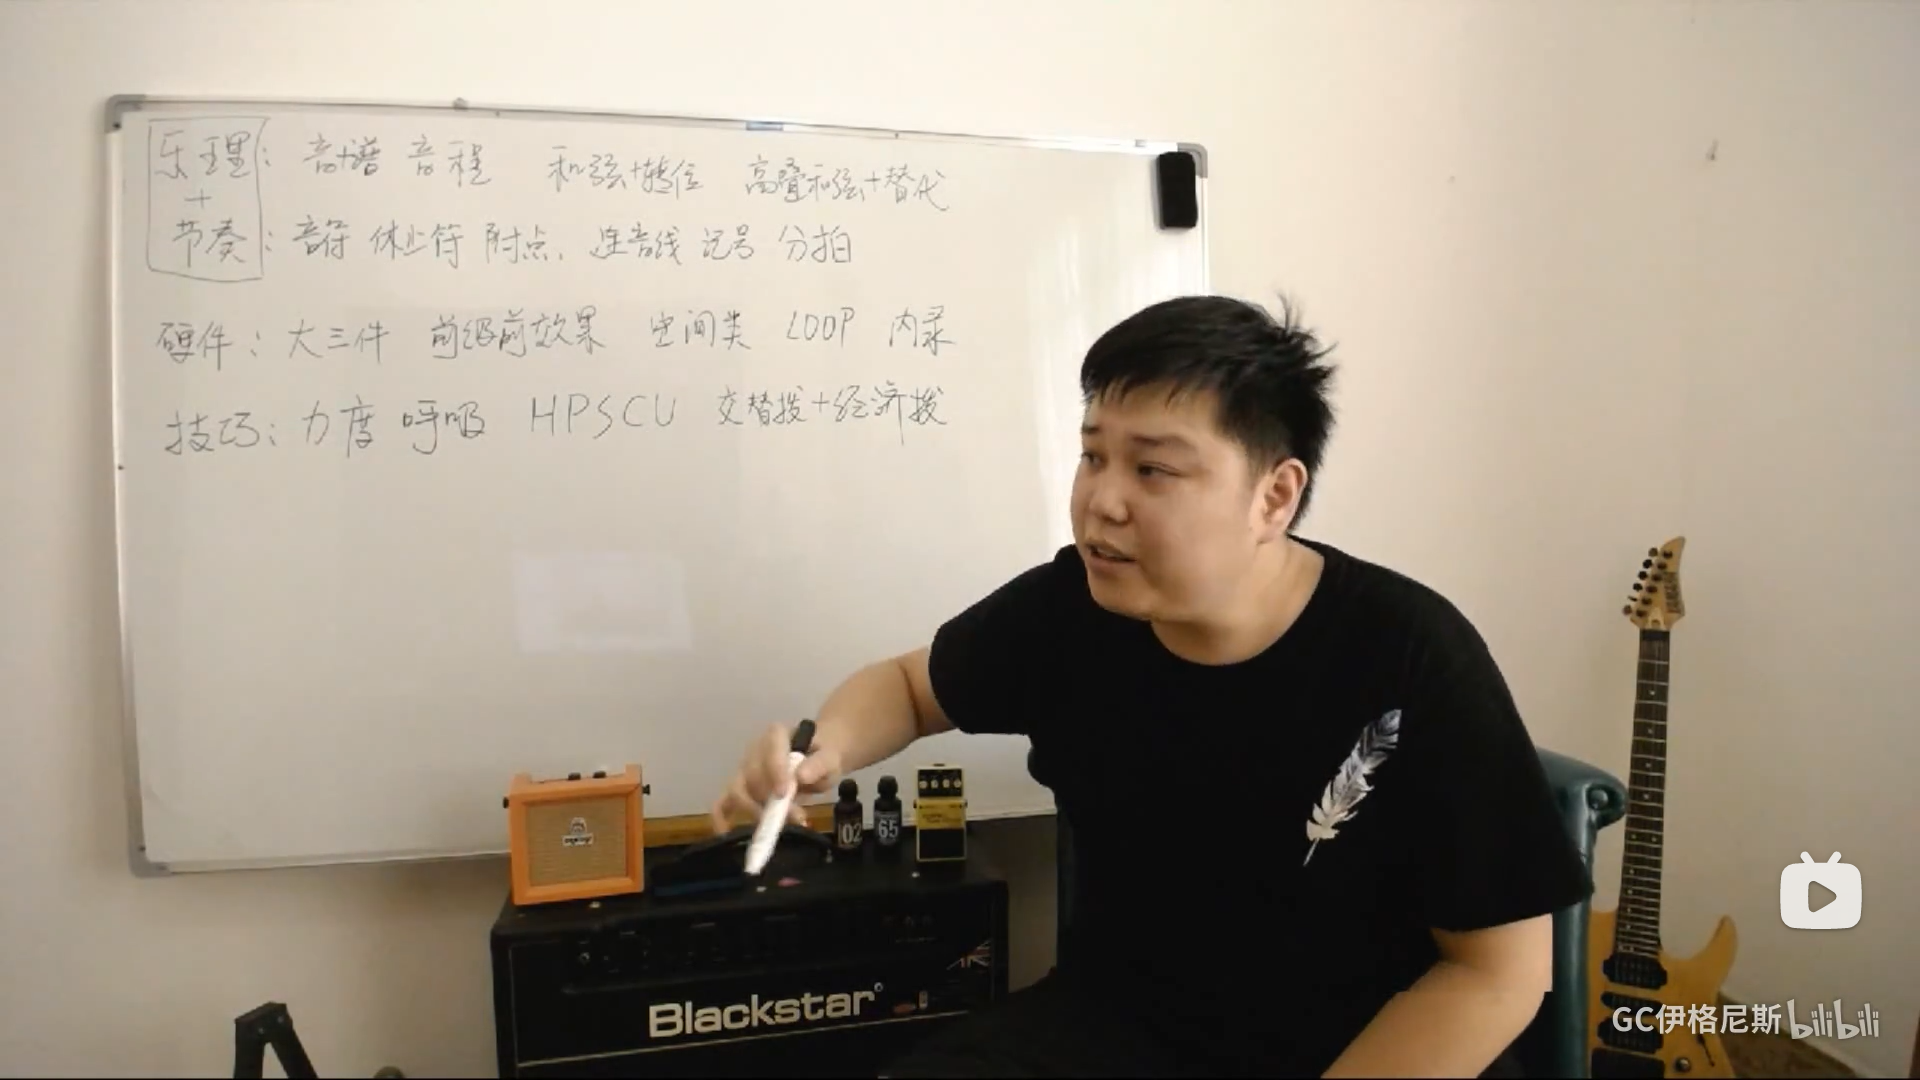 乐理: 音+谱 音程 和弦+转位 高叠和弦+替代
+
节奏: 音符 休止符 附点. 连音线 记号 分拍
硬件: 大三件 前级前效果 空间类 LOOP 内录
技巧: 力度 呼吸 HPSCU 交替拨+经济拨
102
65
Blackstar
GC伊格尼斯 bilibili